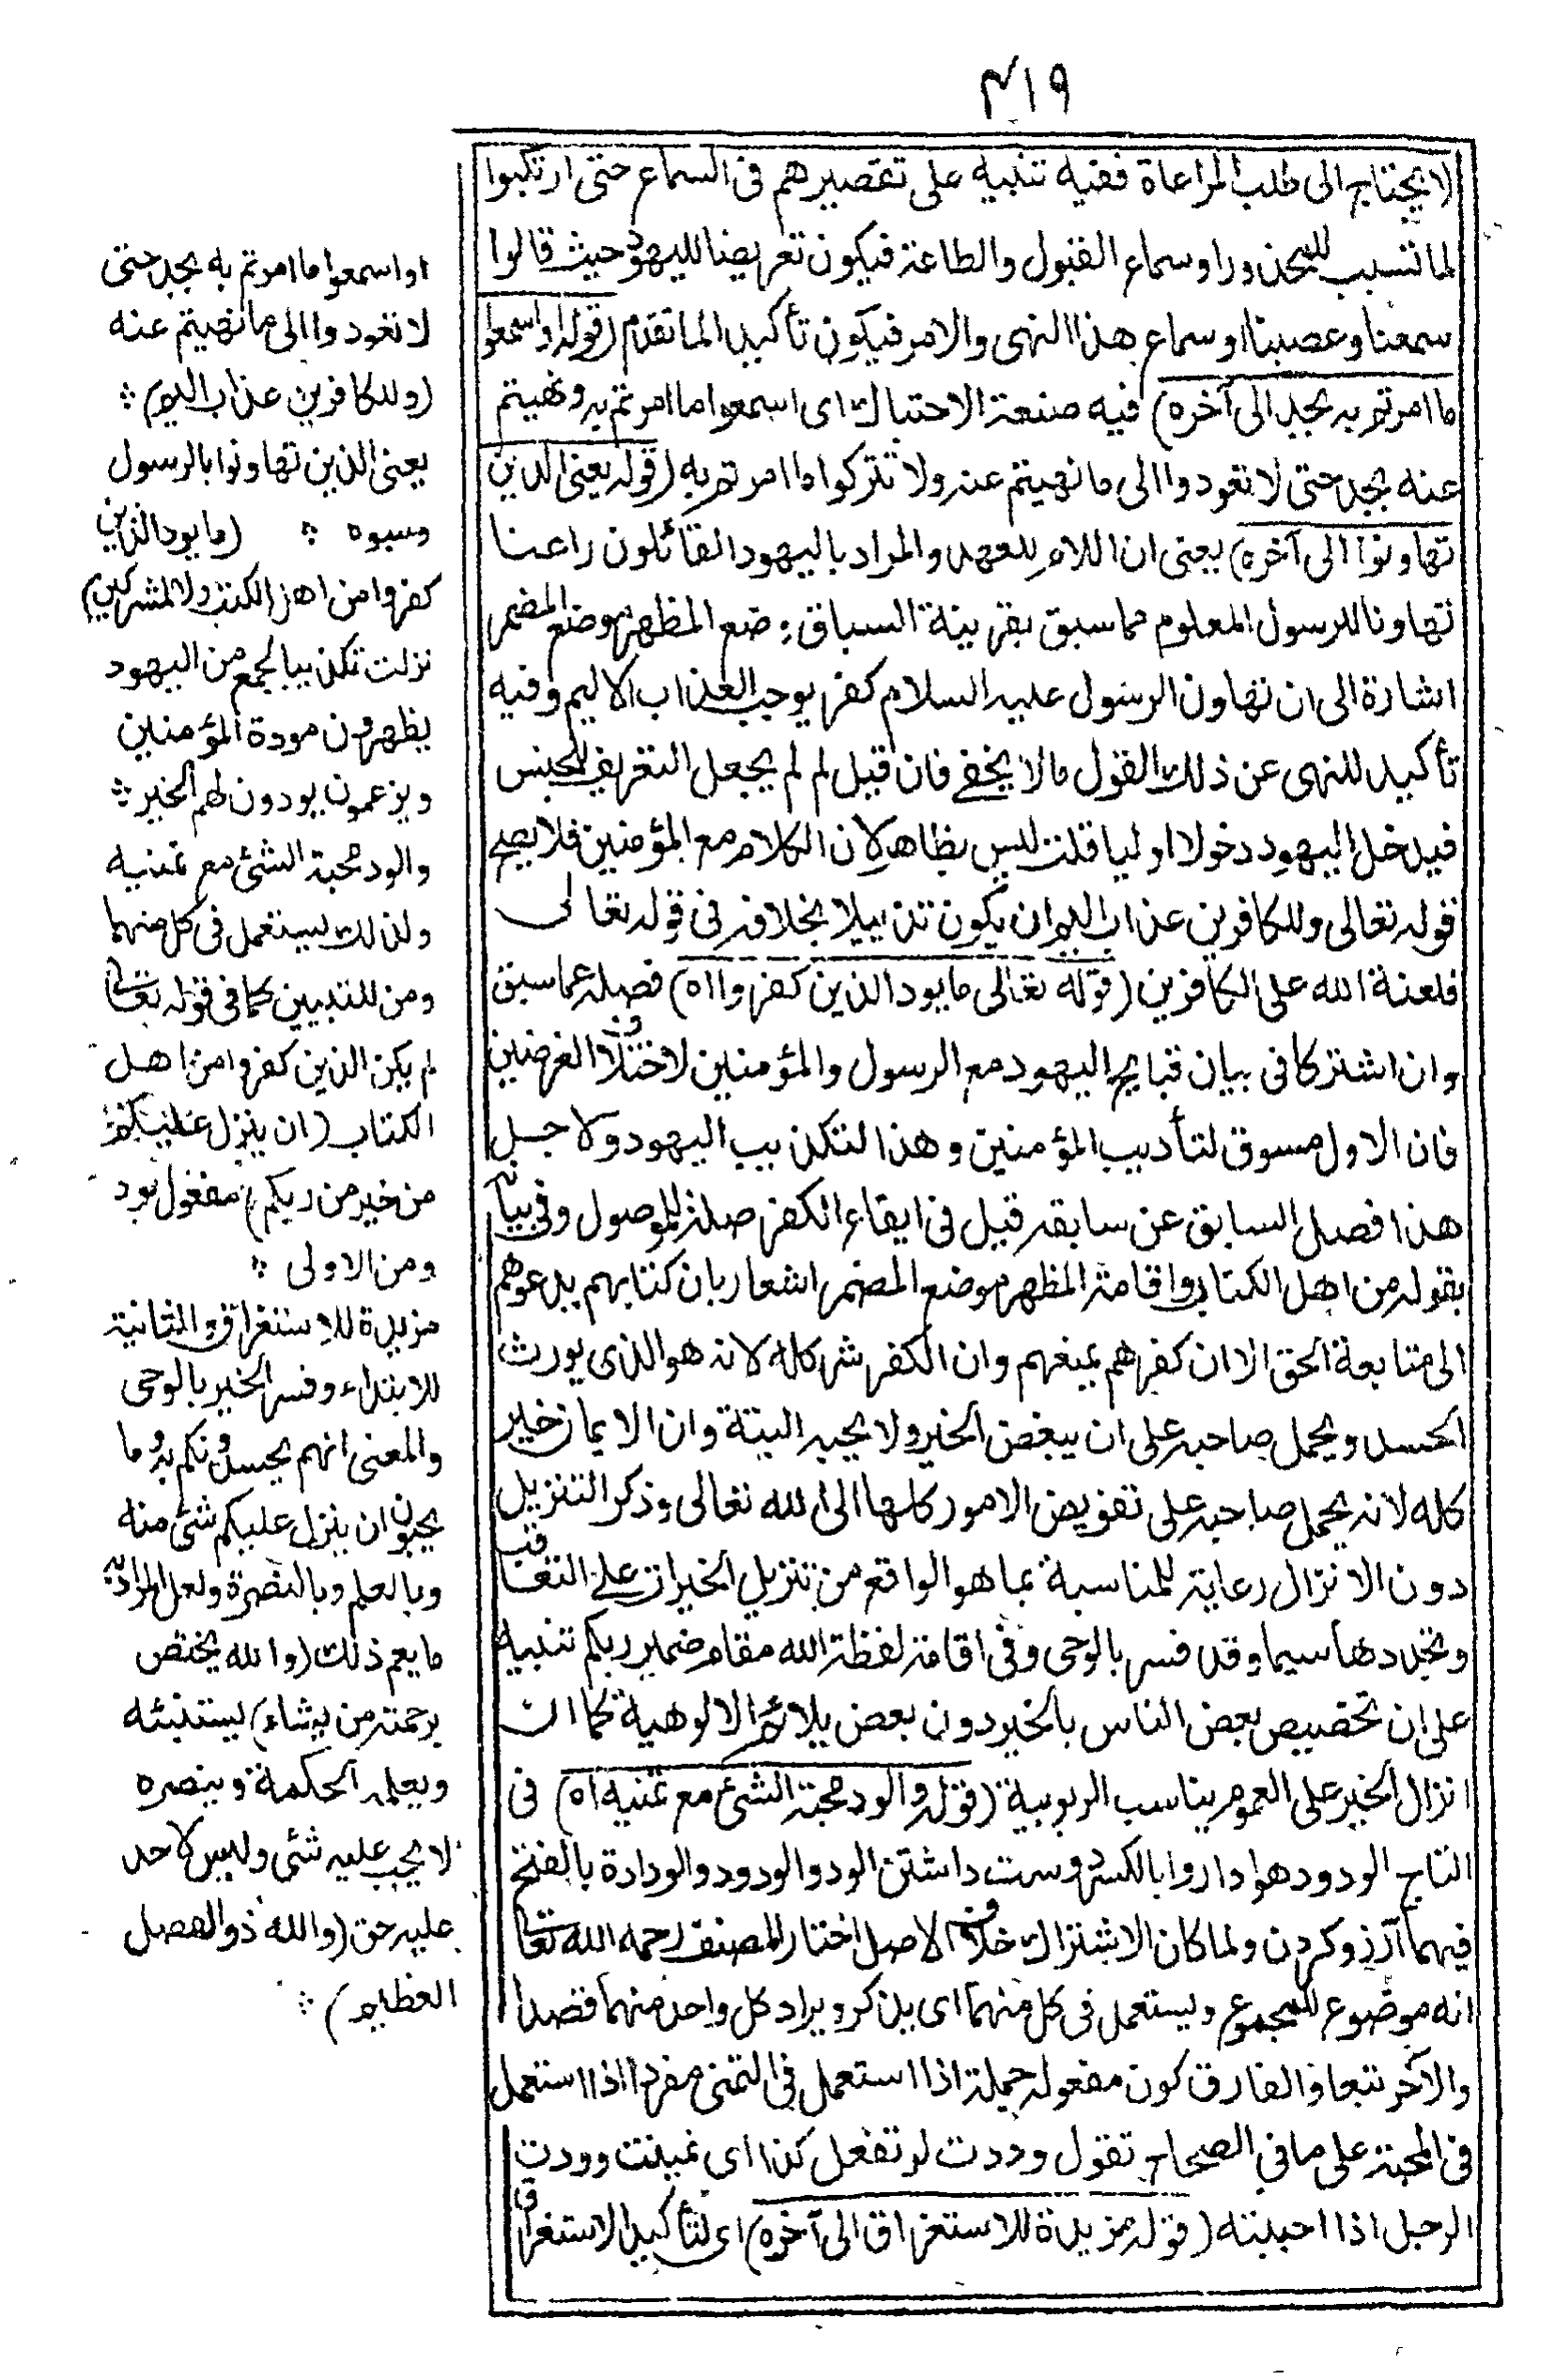 ٤١٩
لا يحتاج الى طلب المراعاة ففيه تنبيه على تقصيرهم فى السماع حتى ارتكبوا
لما تسبب للمحذور او سماع القبول والطاعة فيكون تعريضا لليهود حيث قالوا
سمعنا وعصينا او سماع هذا النهى والامر فيكون تأكيدا لما تقدم (قوله او اسمعوا
ما امرتم به بجد الى آخره) فيه صنعة الاحتباك اى اسمعوا ما امرتم به ونهيتم
عنه بجد حتى لا تعودوا الى ما نهيتم عنه ولا تتركوا ما امرتم به (قوله يعنى الذين
تهاونوا الى آخره) يعنى ان اللام للعهد والمراد باليهود القائلون راعنا
تهاونا للرسول المعلوم مما سبق بقرينة السباق وضع المظهر موضع المضمر
اشارة الى ان تهاون الرسول عليه السلام كفر يوجب العذاب الاليم وفيه
تأكيد للنهى عن ذلك القول ما لا يخفى فان قيل لم لم يجعل التعريف للجنس
فيدخل اليهود دخولا اوليا قلت ليس بظاهر لان الكلام مع المؤمنين فلا يصح
قوله تعالى وللكافرين عذاب اليم ان يكون تذييلا بخلافه فى قوله تعالى
فلعنة الله على الكافرين (قوله تعالى ما يود الذين كفروا اه) فصله عما سبق
وان اشتركا فى بيان قبايح اليهود مع الرسول والمؤمنين لاختلاف الغرضين
فان الاول مسوق لتأديب المؤمنين وهذا لتكذيب اليهود ولاجل
هذا فصل السابق عن سابقه قيل فى ايقاع الكفر صلة للموصول وفى بيانه
بقوله من اهل الكتاب واقامة المظهر موضع المضمر اشعار بان كتابهم يدعوهم
الى متابعة الحق الا ان كفرهم يمنعهم وان الكفر شر كله لانه هو الذى يورث
الحسد ويحمل صاحبه على ان يبغض الخير ولا يحبه البتة وان الايمان خير
كله لانه يحمل صاحبه على تفويض الامور كلها الى الله تعالى وذكر التنزيل
دون الانزال رعاية للمناسبة بما هو الواقع من تنزيل الخيرات على التعاقب
وتجددها سيما وقد فسر بالوحى وفى اقامة لفظة الله مقام ضمير ربكم تنبيه
على ان تخصيص بعض الناس بالخير دون بعض يلائم الالوهية كما ان
انزال الخير على العموم يناسب الربوبية (قوله والود محبة الشئ مع تمنيه اه) فى
التاج الود ودهوادار وا بالكسر دوست داشتن الود والودود والودادة بالفتح
فيهما آرزو كردن ولما كان الاشتراك خلاف الاصل اختار المصنف رحمه الله تعالى
انه موضوع للمجموع ويستعمل فى كل منهما اى يذكر ويراد كل واحد منهما قصدا
والآخر تبعا والفارق كون مفعوله جملة اذا استعمل فى التمنى مفردا اذا استعمل
فى المحبة على ما فى الصحاح تقول وددت لو تفعل كذا اى تمنيت وودت
الرجل اذا احببته (قوله مزيدة للاستغراق الى آخره) اى لتأكيد الاستغراق
او اسمعوا ما امرتم به بجد حتى
لا تعودوا الى ما نهيتم عنه
(وللكافرين عذاب اليم) ؞
يعنى الذين تهاونوا بالرسول
وسبوه ؞ (ما يود الذين
كفروا من اهل الكتب ولا المشركين)
نزلت تكذيبا لجمع من اليهود
يظهرون مودة المؤمنين
ويزعمون يودون لهم الخير ؞
والود محبة الشئ مع تمنيه
ولذلك يستعمل فى كل منهما
ومن للتبيين كما فى قوله تعالى
لم يكن الذين كفروا من اهل
الكتاب (ان ينزل عليكم
من خير من ربكم) مفعول يود
ومن الاولى ؞
مزيدة للاستغراق والثانية
للابتداء وفسر الخير بالوحى
والمعنى انهم يحسدونكم به وما
يحبون ان ينزل عليكم شئ منه
وبالعلم وبالنصرة ولعل المراد به
ما يعم ذلك (والله يختص
برحمته من يشاء) يستنبئه
ويعلمه الحكمة وينصره
لا يجب عليه شئ وليس لاحد
عليه حق (والله ذو الفضل
العظيم) ؞